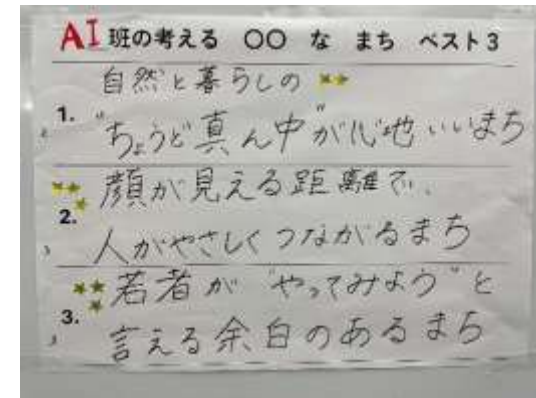 AI 班の考える ○○ な まち ベスト3
自然と暮らしの
1. "ちょうど真ん中"が心地いいまち
顔が見える距離で、
2.
人がやさしくつながるまち
若者が "やってみよう" と
3.
言える余白のあるまち